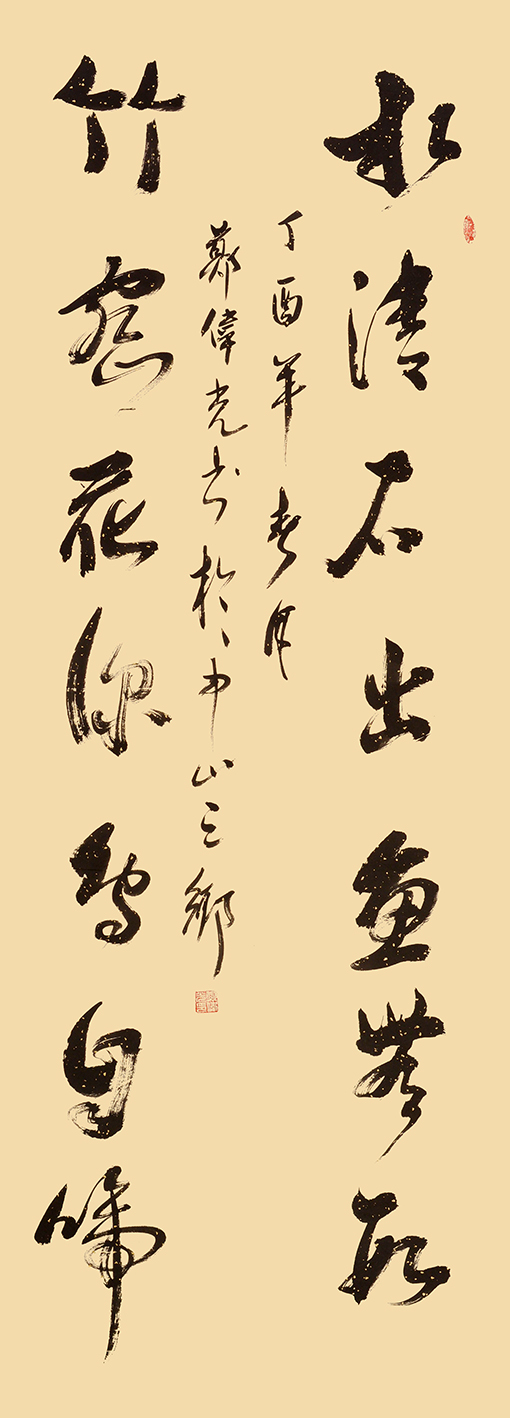 水清石出魚無數
丁酉年春月
鄭偉光书於中山三鄉
竹密花深鳥自啼